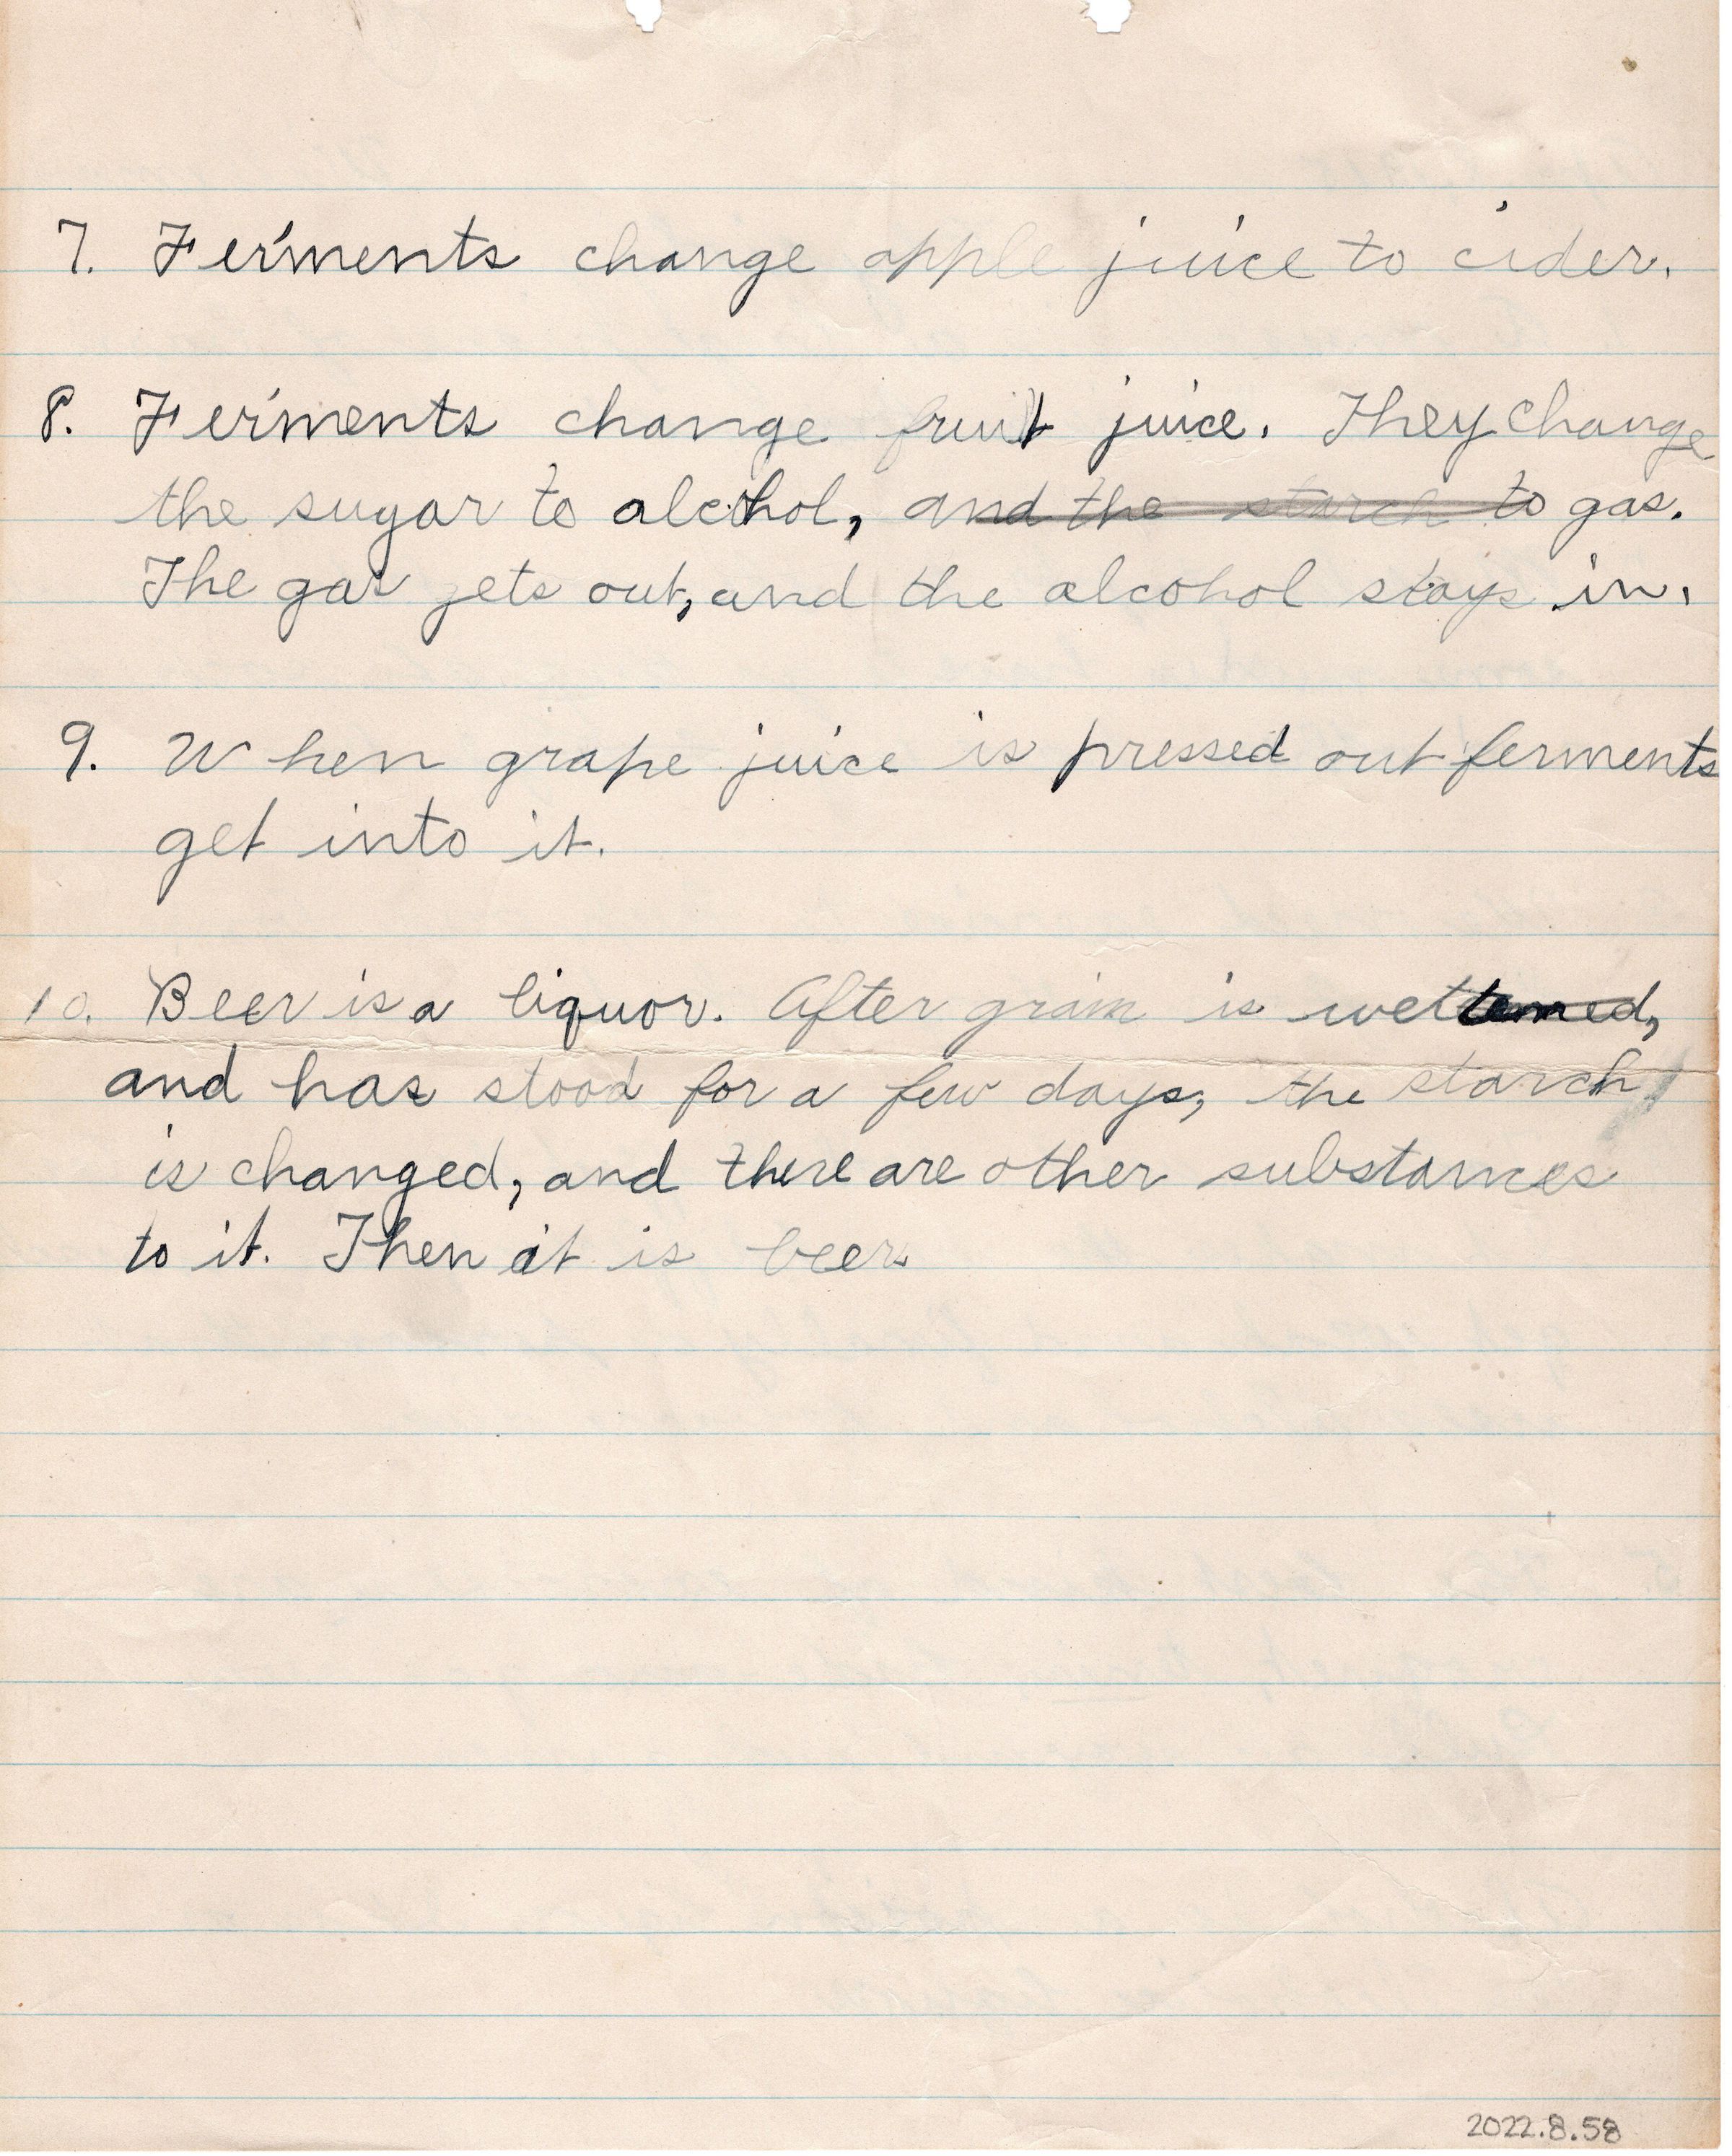 7. Ferments change apple juice to cider.
8. Ferments change fruit juice. They change
the sugar to alcohol, and the starch to gas.
The gas gets out, and the alcohol stays in.
9. When grape juice is pressed out ferments
get into it.
10. Beer is a liquor. After grain is wettened,
and has stood for a few days, the starch
is changed, and there are other substances
to it. Then it is beer.
2022.8.58